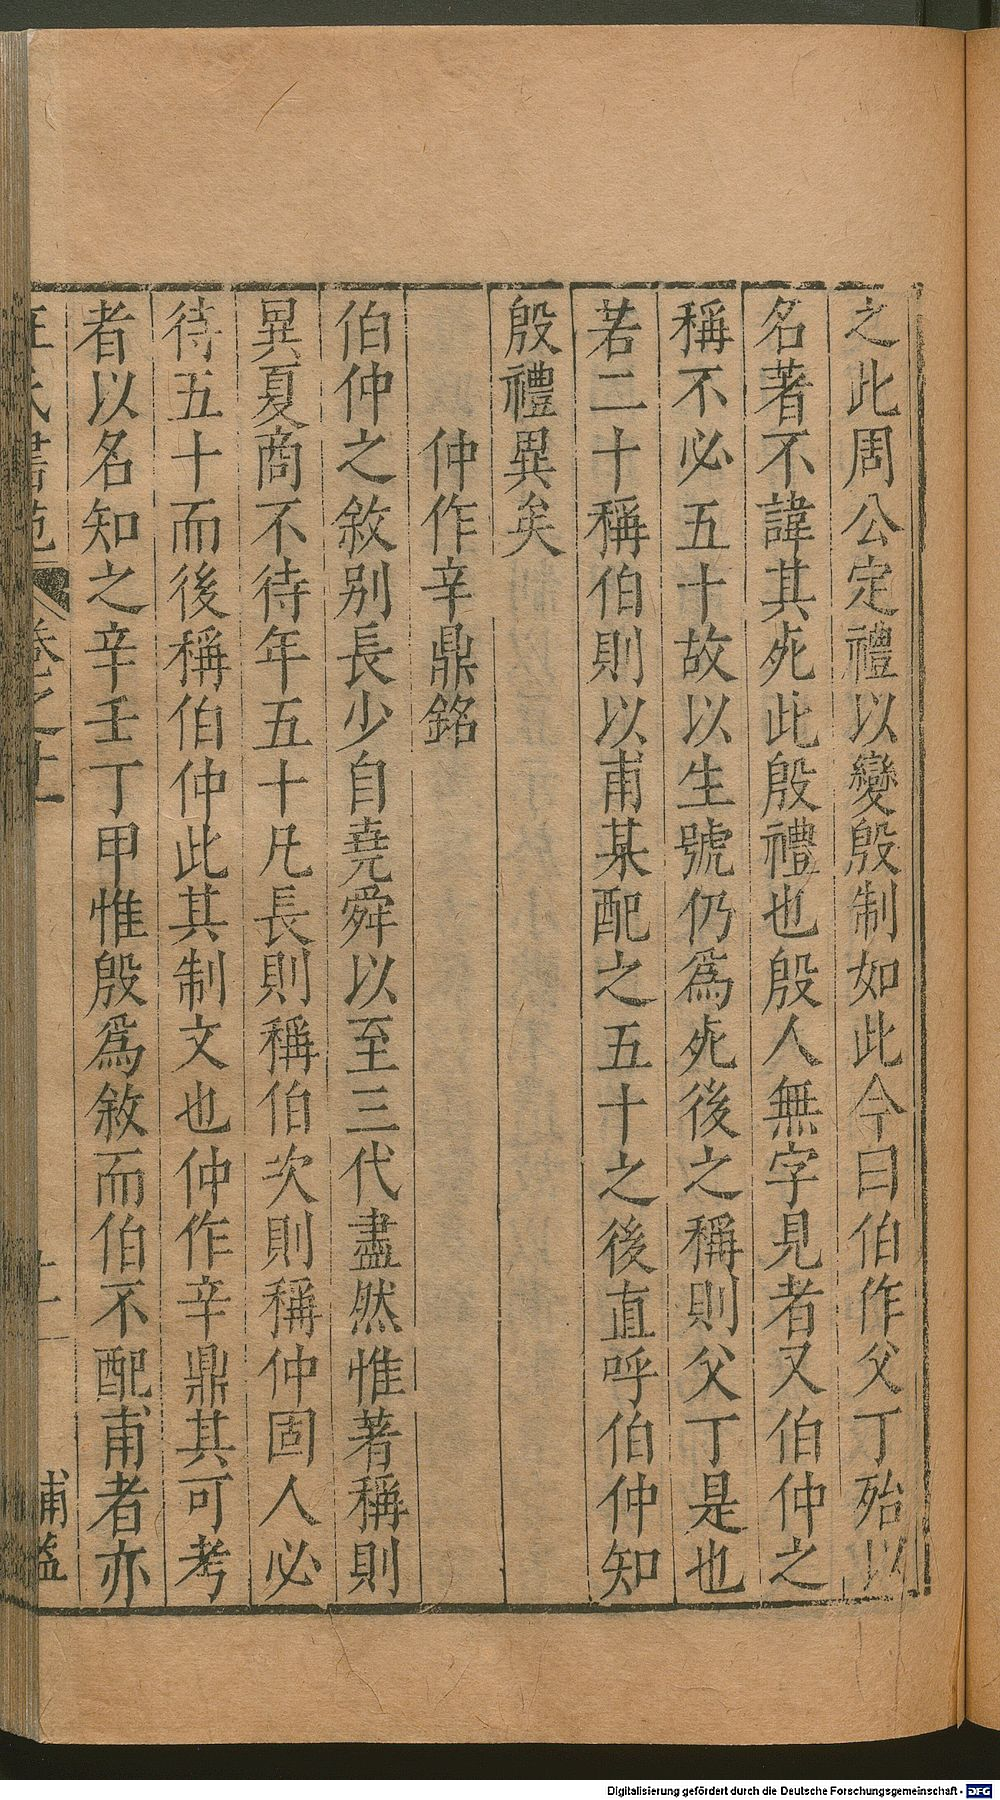 之此周公定禮以變殷制如此今曰伯作父丁殆以
名著不諱其死此殷禮也殷人無字見者又伯仲之
稱不必五十故以生號仍爲死後之稱則父丁是也
若二十稱伯則以甫某配之五十之後直呼伯仲知
殷禮異矣
仲作辛鼎銘
伯仲之敘别長少自堯舜以至三代盡然惟著稱則
異夏商不待年五十凡長則稱伯次則稱仲固人必
待五十而後稱伯仲此其制文也仲作辛鼎其可考
者以名知之辛壬丁甲惟殷爲敘而伯不配甫者亦
卷之十一
Digitalisierung gefördert durch die Deutsche Forschungsgemeinschaft - DFG